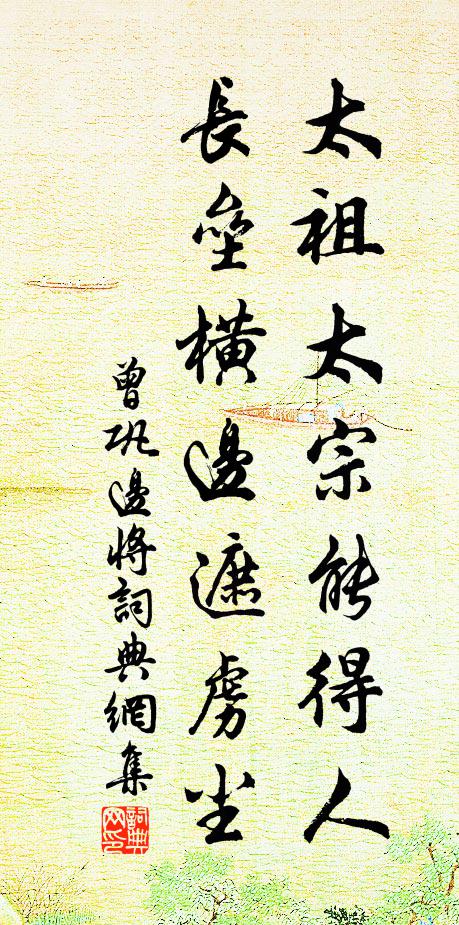 太祖太宗能得人
長壘橫邊遮虜尘
曾巩邊将詞典網集
詞典网印